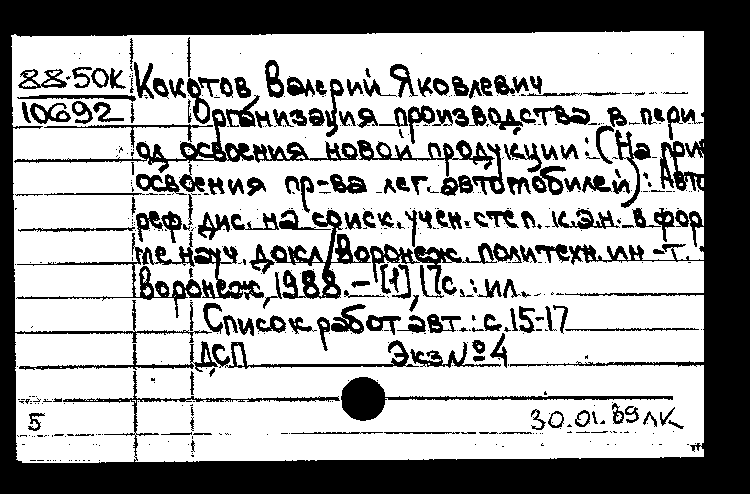 88-50К Кокотов Валерий Яковлевич
10692 Организация производства в пери-
од освоения новой продукции: (На при
освоения пр-ва лег. автомобилей): Авто
реф. дис. на соиск. учен. степ. к.э.н. в фор
ме науч. докл/Воронеж. политехн. ин-т. -
Воронеж, 1988. - [1], 17с. : ил.
Список работ авт. : с. 15-17
ДСП Экз №4
5 30.01.89 ЛК